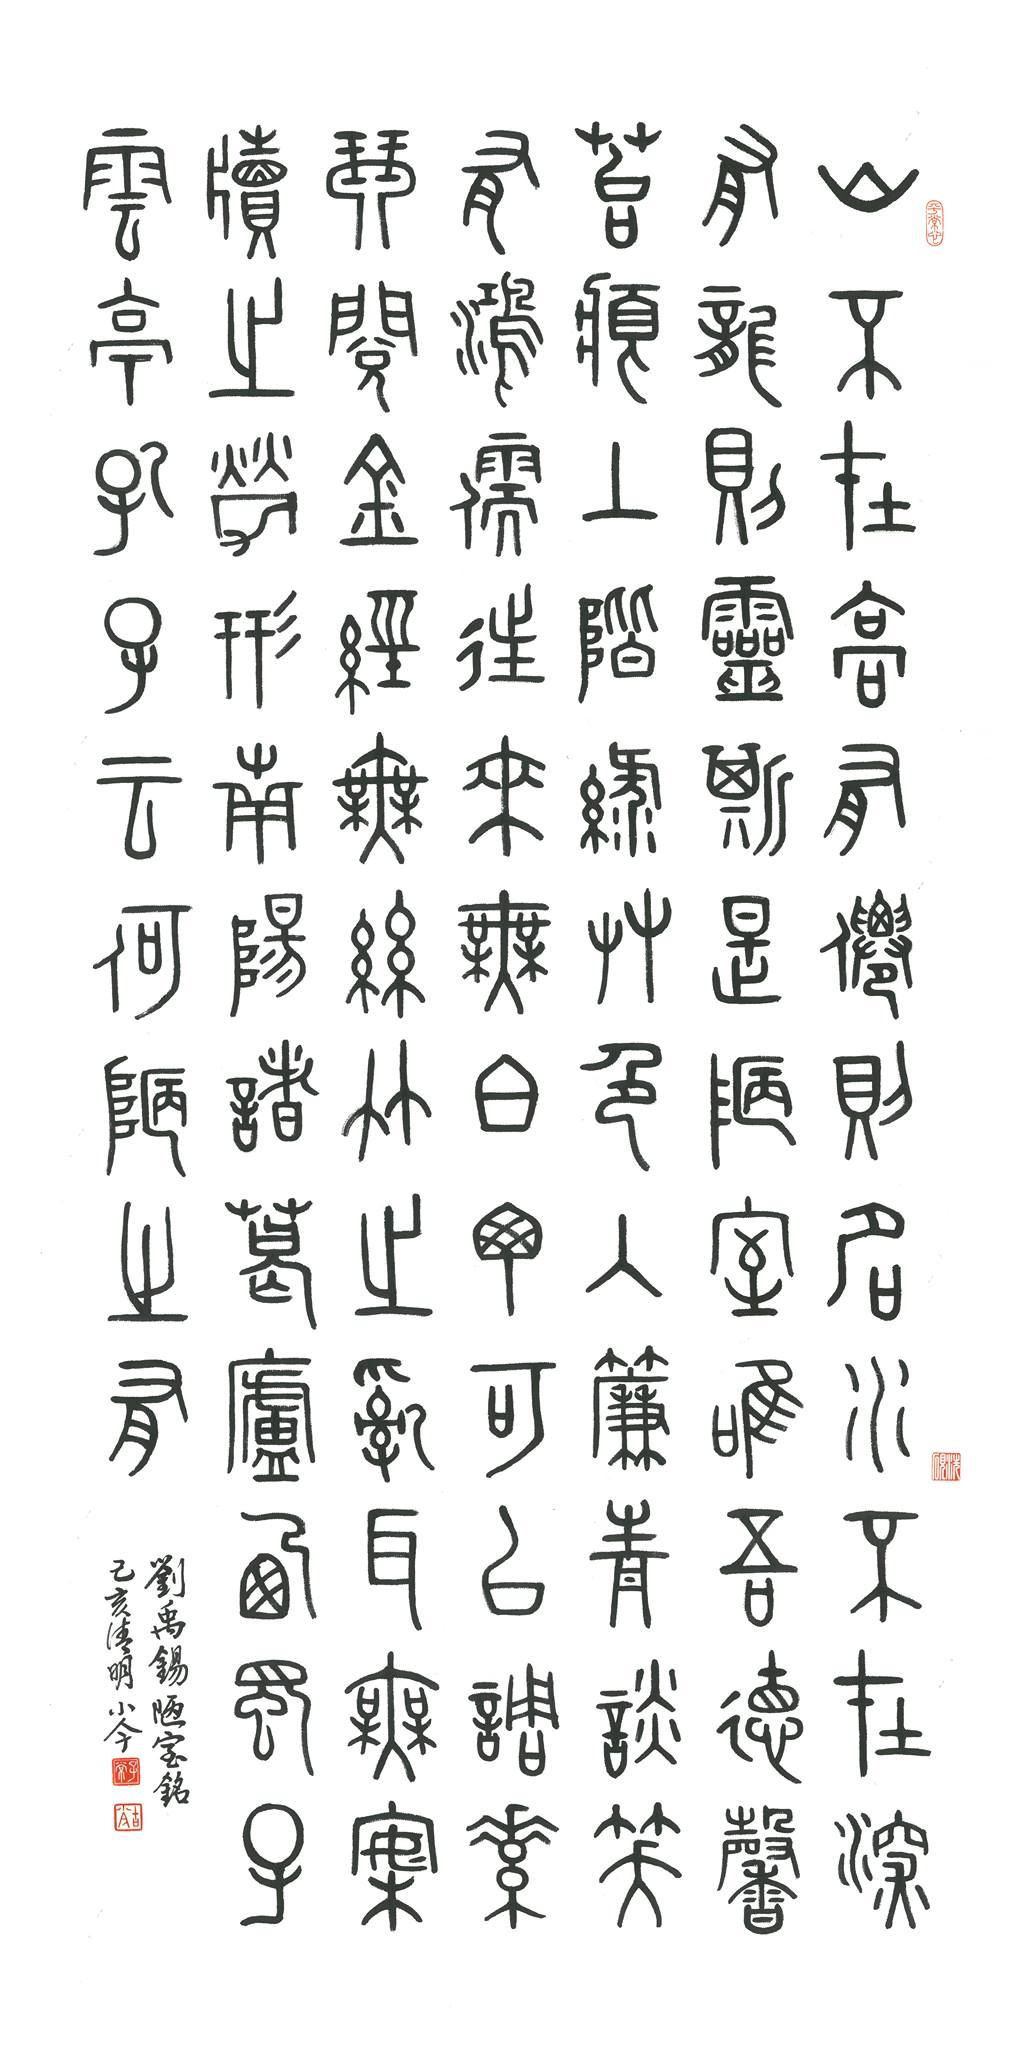 山不在高有僊則名水不在深
有龍則靈斯是陋室唯吾德馨
苔痕上階綠艸色入簾青談笑
有鴻儒往來無白甲可以調素
琴閱金經無絲竹之亂耳無案
牘之勞形南陽諸葛廬西蜀子
雲亭孔子云何陋之有
劉禹錫陋室銘
己亥清明小今